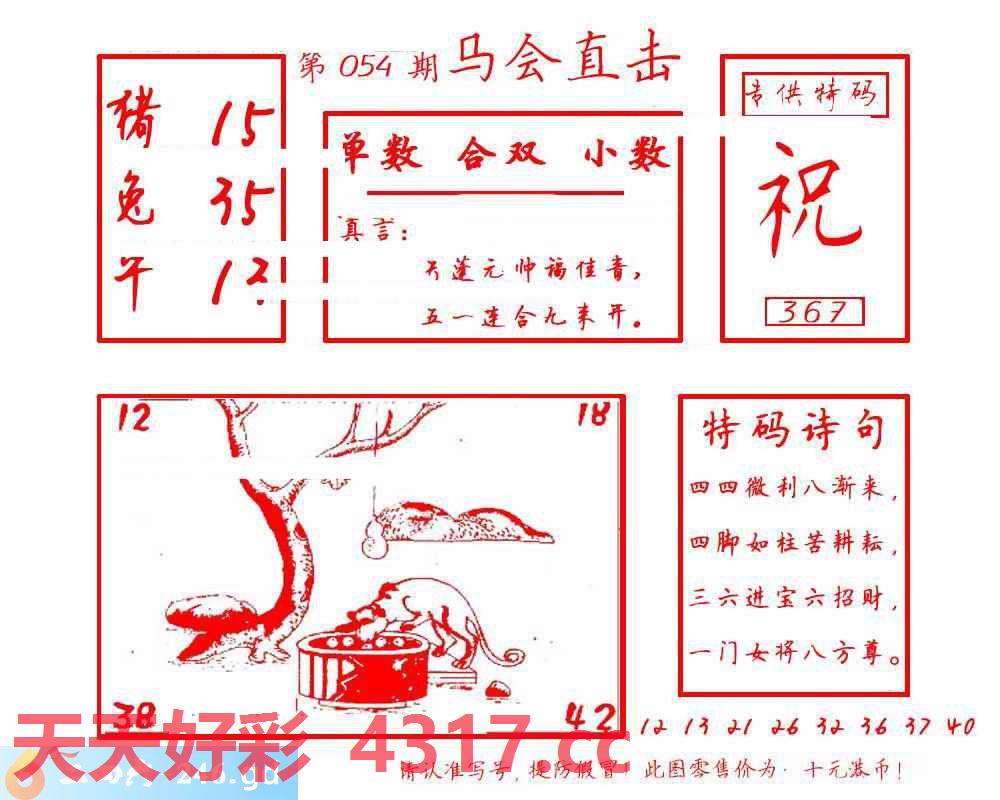 第 054 期 马会直击
猪 15
兔 35
午 12
单数 合双 小数
真言:
天蓬元帅福佳音,
五一连合九来开。
专供特码
祝
367
12
18
38
42
特码诗句
四四微利八渐来,
四脚如柱苦耕耘,
三六进宝六招财,
一门女将八方尊。
12 13 21 26 32 36 37 40
天天好彩 4317.cc
246.gd
请认准写号,提防假冒! 此图零售价为·十元港币!